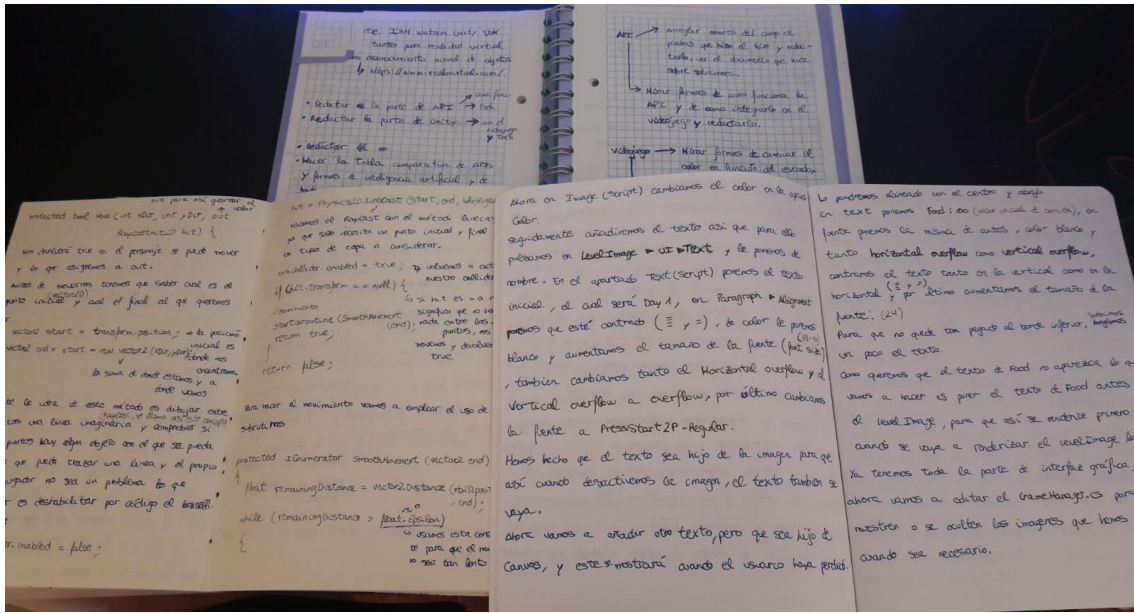 IBM Watson Unity SDK
tanto para realidad virtual
reconocimiento visual de objetos
• Redactar la parte de API → tres
• Redactar la parte de Unity → en el
• Redactar
• Hacer la tabla comparativa de APIs
y formas de inteligencia artificial y de
API → Arreglar errores del campo de
pruebas que hizo el tico y redac-
tarlo, va el documento que hice
sobre soluciones.
→ Mirar formas de como funciona la
API y de como integrarlo en el
videojuego y redactarlo.
videojuego → Mirar formas de cambiar el
color en función del estado
protected bool Move (int xDir, int yDir, out
RaycastHit2D hit) {
true si el personaje se puede mover
y lo que asignemos a out.
Antes de movernos tenemos que saber cual es el
punto inicial y cual el final al que queremos
vector2 start = transform.position; → la posición
inicial es
donde nos
encontramos
vector2 end = start + new vector2 (xDir, yDir);
la suma de donde estamos y a
donde vamos
la idea de este método es dibujar entre
una línea imaginaria y comprobar si
puntos hay algún objeto con el que se pueda
que puede trazar una línea y el propio
jugador no sea un problema lo que
es deshabilitar por código el
enabled = false;
hit = Physics2D.Linecast (start, end,
hacemos el Raycast con el método linecast
ya que solo necesita un punto inicial y final
un tipo de capa a considerar.
enabled = true; → volvemos a
nuestro collider
if (hit.transform == null) {
↳ si hit es
significa que no
nada entre los
puntos, nos
movemos y devolver
true
startcoroutine (SmoothMovement (end);
return true;
}
return false;
Para hacer el movimiento vamos a emplear el uso de
protected IEnumerator SmoothMovement (vector2 end)
float remainingDistance = vector2.Distance
end);
while (remainingDistance > float.Epsilon)
↳ usamos esta
para que el
no sea tan lento
{
Ahora en Image (script) cambiamos el color en la
Color.
Seguidamente añadiremos el texto asi que para ello
pulsamos en LevelImage ► UI ► TEXT y le ponemos de
nombre. En el apartado Text (script) ponemos el texto
inicial, el cual será Day 1, en Paragraph ► Alignment
ponemos que esté centrado (≡ y =), de color le ponemos
blanco y aumentamos el tamaño de la fuente (font size)
, tambien cambiamos tanto el Horizontal overflow y el
vertical overflow a overflow, por último cambiamos
la fuente a PressStart2P-Regular.
Hemos hecho que el texto sea hijo de la imagen para que
así cuando desactivemos la imagen, el texto también se
vaya.
Ahora vamos a añadir otro texto, pero que sea hijo de
Canvas, y este mostrará cuando el usuario haya perdido.
Lo pondremos alineado con el centro y abajo.
En text ponemos Food: 100 (valor inicial de comida), en
fuente ponemos la misma de antes, color blanco y
tanto horizontal overflow como vertical overflow,
centramos el texto tanto en la vertical como en la
horizontal (≡ y =) y por último aumentamos el tamaño de la
fuente. (24)
Para que no quede tan pegado al borde inferior, subimos
un poco el texto.
Como queremos que el texto de Food no aparezca lo que
vamos a hacer es poner el texto de Food antes
de Level Image, para que así se renderice primero
cuando se vaya a renderizar el LevelImage
Ya tenemos toda la parte de interfaz gráfica,
ahora vamos a editar el GameManager.cs para
muestren o se oculten las imagenes que hemos
cuando sea necesario.